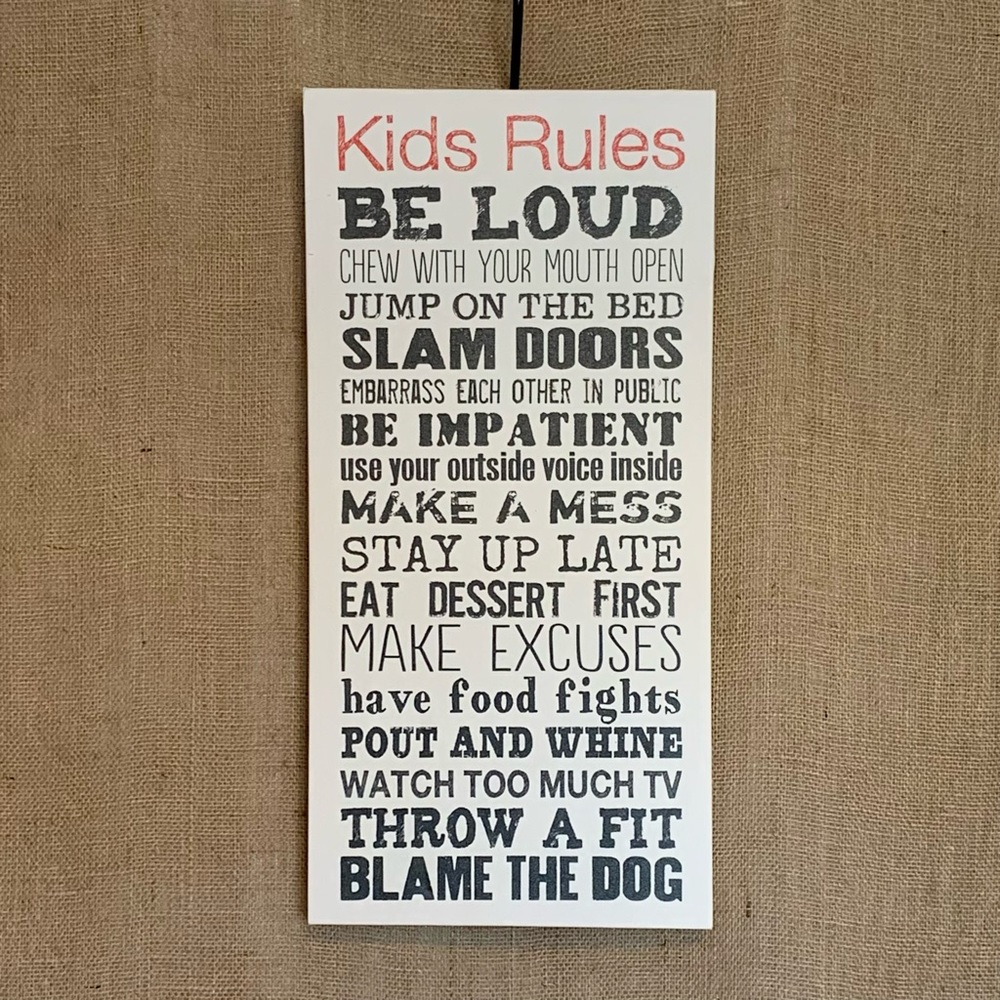 Kids Rules
BE LOUD
CHEW WITH YOUR MOUTH OPEN
JUMP ON THE BED
SLAM DOORS
EMBARRASS EACH OTHER IN PUBLIC
BE IMPATIENT
use your outside voice inside
MAKE A MESS
STAY UP LATE
EAT DESSERT FIRST
MAKE EXCUSES
have food fights
POUT AND WHINE
WATCH TOO MUCH TV
THROW A FIT
BLAME THE DOG